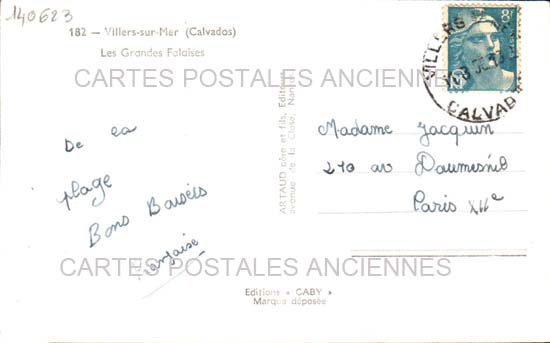 140623
182 — Villers-sur-Mer (Calvados)
Les Grandes Falaises
CARTES POSTALES ANCIENNES
De la
plage
Bons Baisers
Françoise
ARTAUD père et fils, Editeurs
avenue de la Close, Nantes
VILLERS
CALVADOS
Madame Jacquin
270 av Daumesnil
Paris XIIe
CARTES POSTALES ANCIENNES
Editions « GABY »
Marque déposée